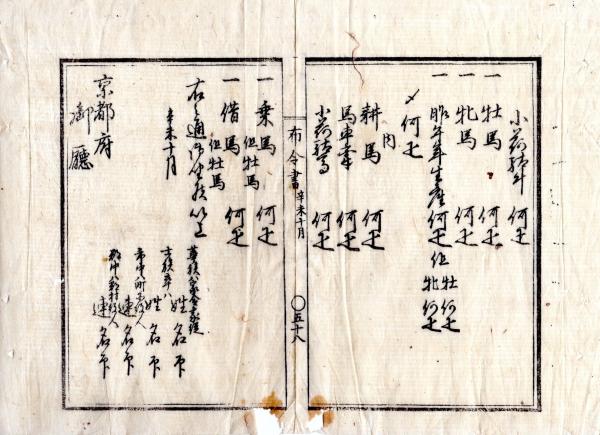 小荷駄牛 何疋
一 牡馬 何疋
一 牝馬 何疋
一 昨午年生産何疋 但 牡何疋 牝何疋
〆何疋
内
耕馬 何疋
馬車牽 何疋
小荷駄馬 何疋
布令書 辛未十月 〇五十八
一 乗馬 但牡馬 何疋
一 借馬 但牡馬 何疋
右之通御坐候以上
辛未十月
姓名印
士族卒 姓名印
連名印
連名印
京都府
御廳